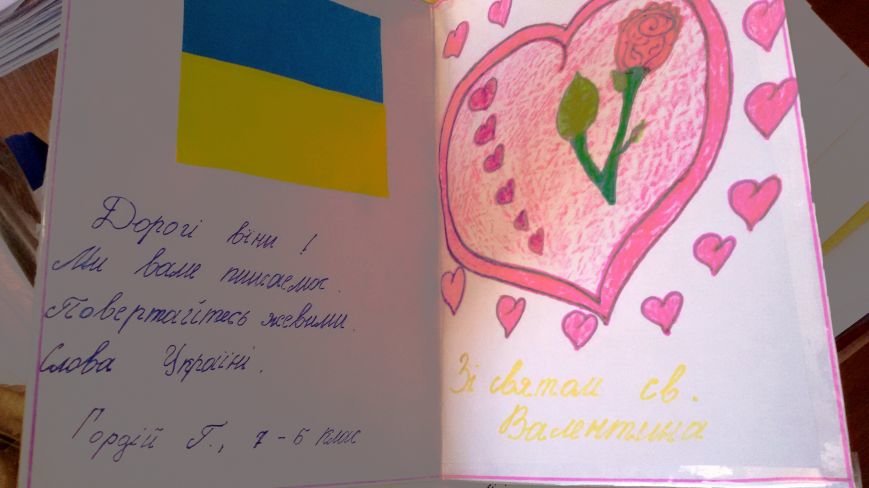 Дорогі віни!
Ми вами пишаємос.
Повертайтесь живими.
Слава Україні.
Гордій Г., 7-Б клас
Зі святом св.
Валентина